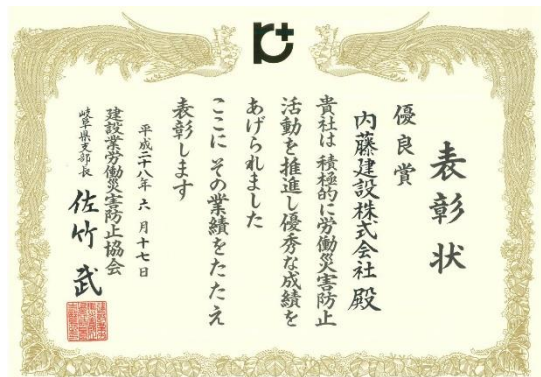 表彰状
優良賞
内藤建設株式会社 殿
貴社は 積極的に労働災害防止
活動を推進し優秀な成績を
あげられました
ここに その業績をたたえ
表彰します
平成二十八年 六 月 十七 日
建設業労働災害防止協会
岐阜県支部長 佐竹 武